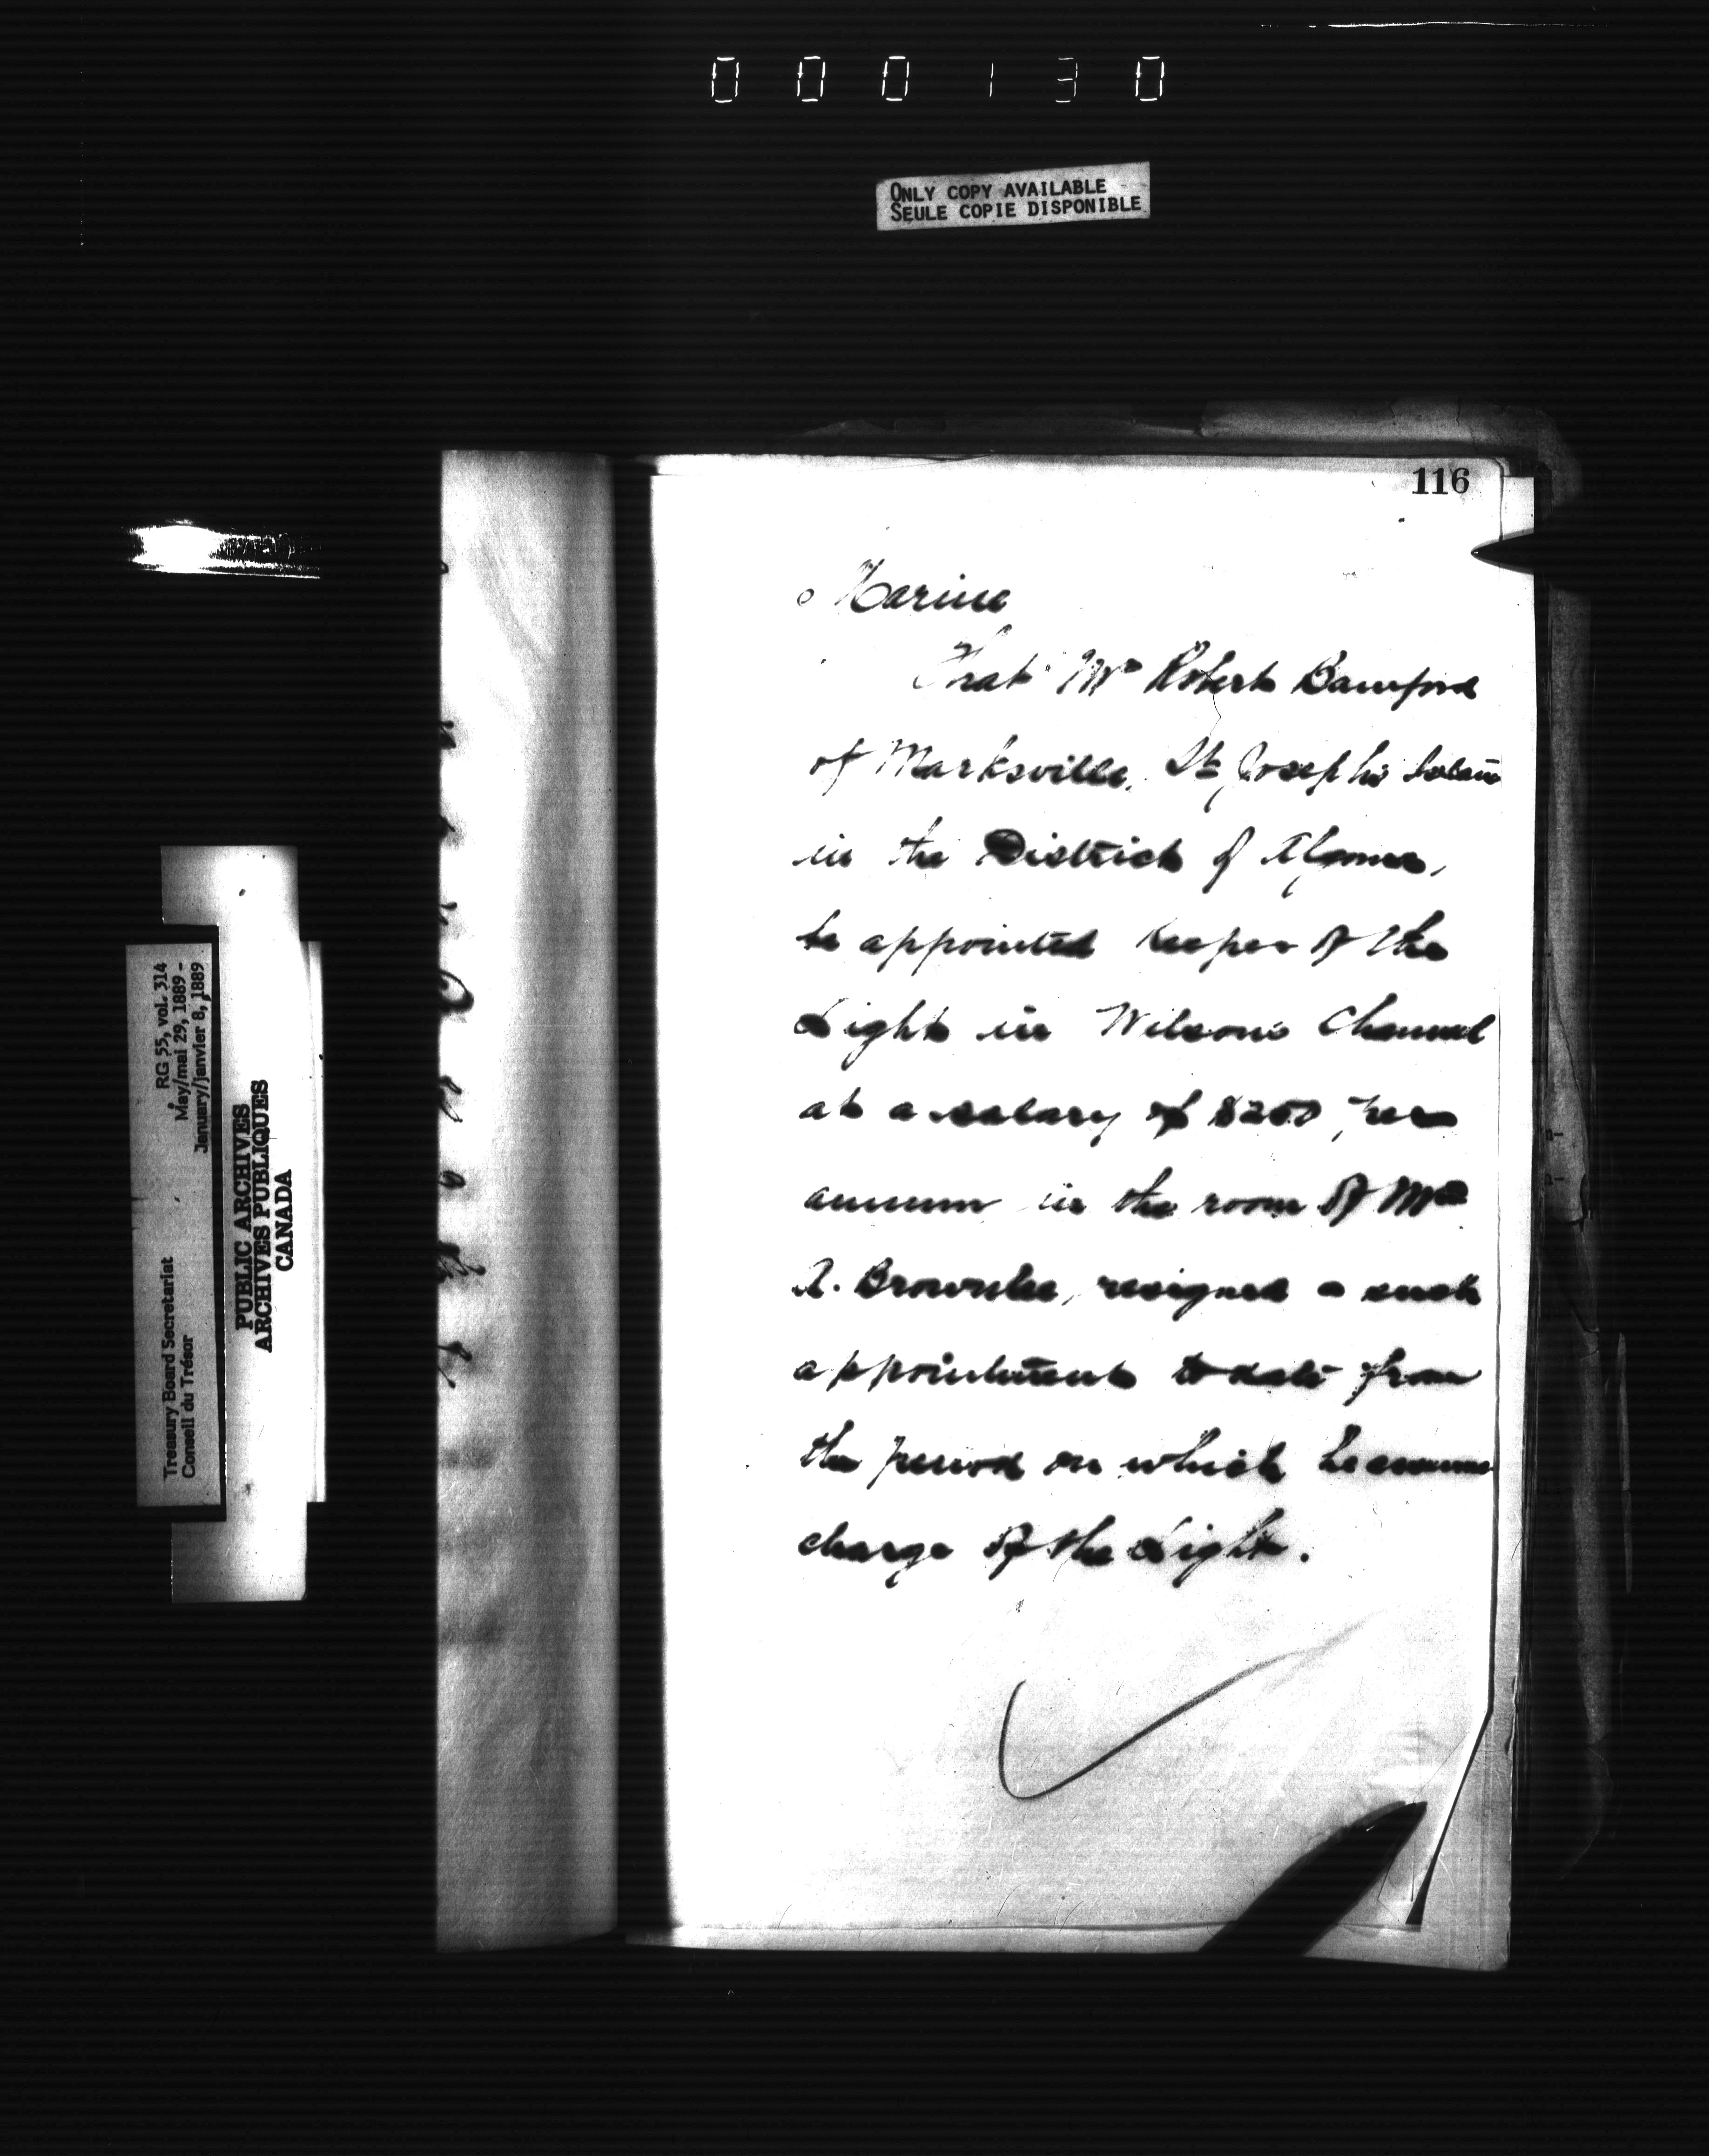 000130
ONLY COPY AVAILABLE
SEULE COPIE DISPONIBLE
116
Marine
That Mr Robert Bamford
of Marksville, St Joseph's Island
in the District of Algoma,
be appointed Keeper of the
Light in Wilson's Channel
at a salary of $200 per
annum in the room of Mr
A. Brownlee, resigned - such
appointment to date from
the period on which he assumes
charge of the Light.
RG 55, vol. 314
May/mai 29, 1889 -
January/janvier 8, 1889
Treasury Board Secretariat
Conseil du Trésor
PUBLIC ARCHIVES
ARCHIVES PUBLIQUES
CANADA